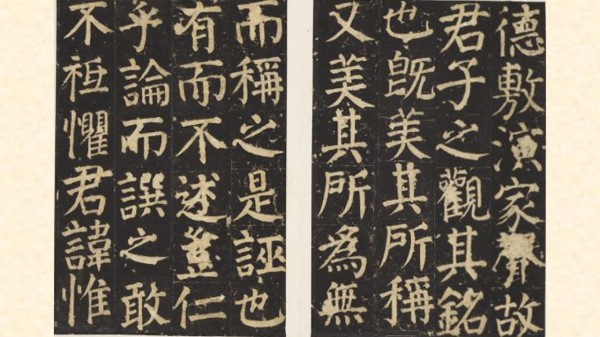 德敷演家聲故
君子之觀其銘
也既美其所稱
又美其所為無
而稱之是誣也
有而不述豈仁
乎論而譔之敢
不祗懼君諱惟